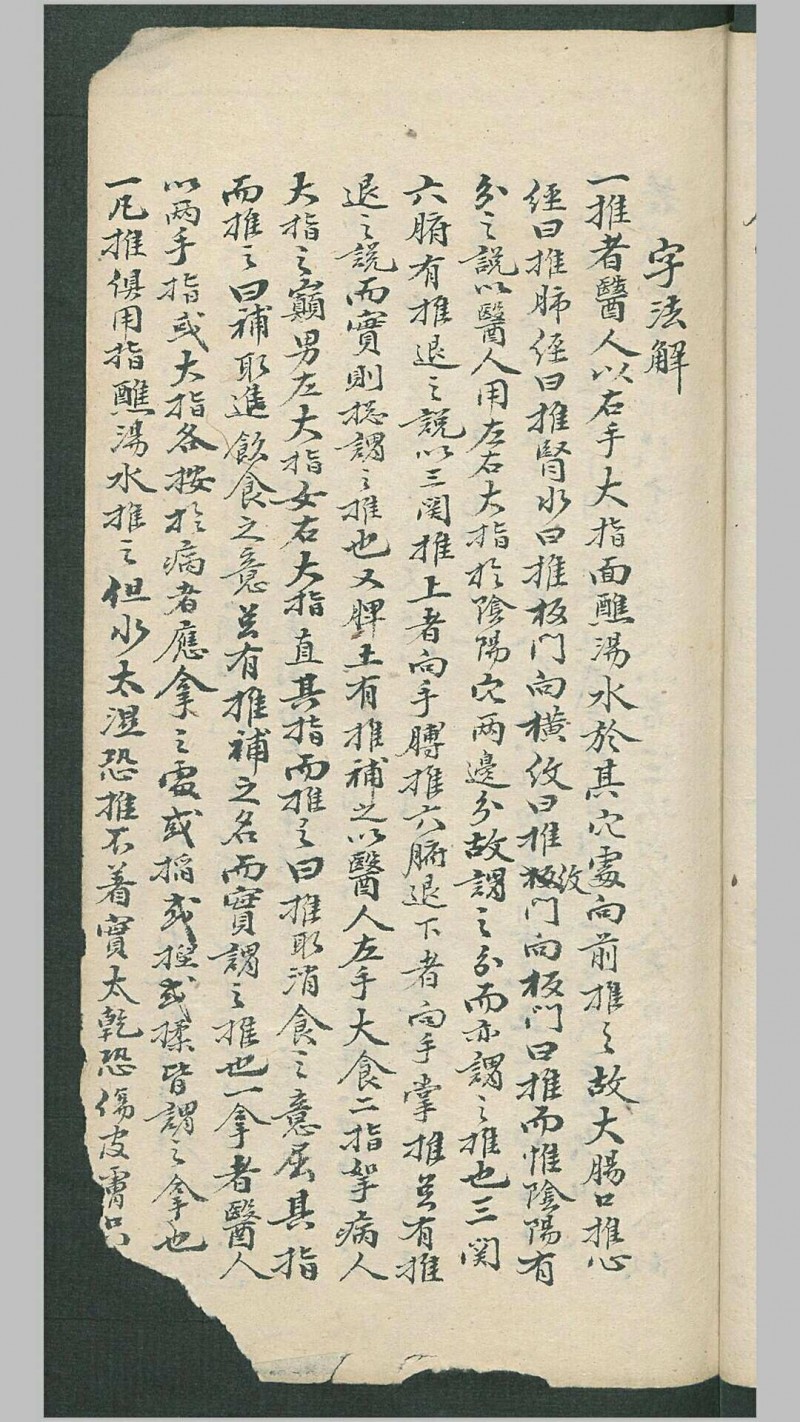 字法解
一推者醫人以右手大指面醮湯水於其穴處向前推之故大腸曰推心
經曰推肺經曰推腎水曰推板門向橫紋曰推紋門向板門曰推而惟陰陽有
分之說以醫人用左右大指於陰陽穴兩邊分故謂之分而亦謂之推也三関
六腑有推退之說以三関推上者向手膊推六腑退下者向手掌推豈有推
退之說而實則揔謂之推也又脾土有推補之以醫人左手大食二指拏病人
大指之巔男左大指女右大指直其指而推之曰推取消食之意屈其指
而推之曰補取進飲食之意豈有推補之名而實謂之推也一拿者醫人
以兩手指或大指各按於病者應拿之處或掐或揑或揉皆謂之拿也
一凡推俱用指醮湯水推之但水太濕恐推不着實太乾恐傷皮膚